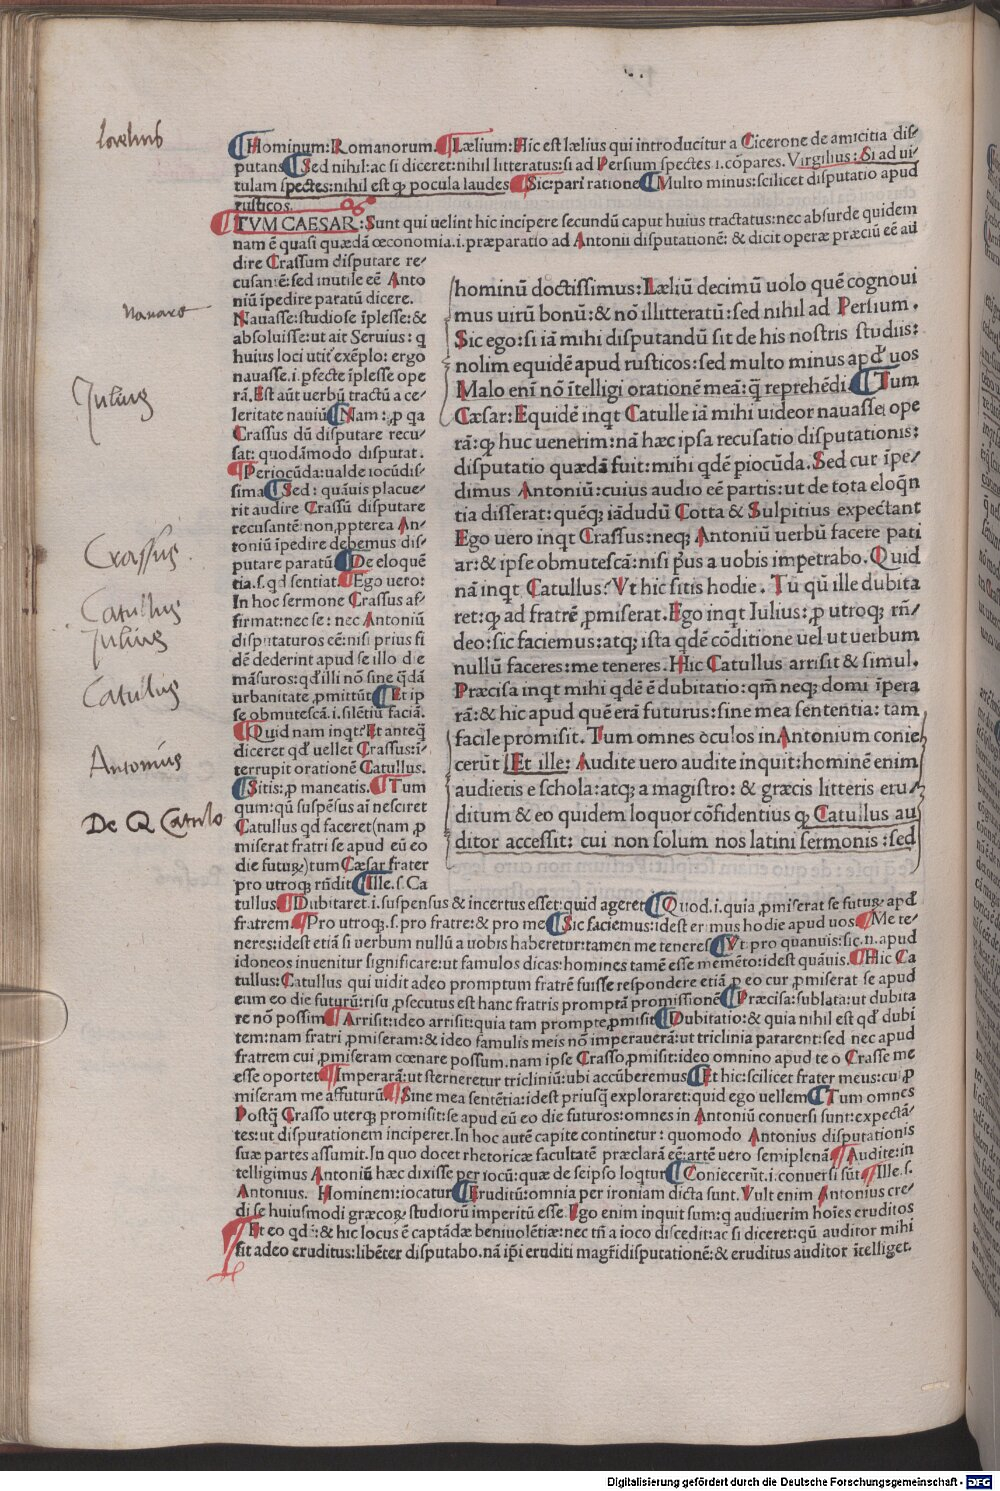 Hominum: Romanorum. Lælium: Hic est lælius qui introducitur a Cicerone de amicitia dis-
putans Sed nihil: ac si diceret: nihil litteratus: si ad Persium spectes .i. cōpares. Virgilius: Si ad ui-
tulam spectes: nihil est qȝ pocula laudes Sic: pari ratione Multo minus: scilicet disputatio apud
rusticos.
TVM CAESAR: Sunt qui uelint hic incipere secundū caput huius tractatus: nec absurde quidem
nam ē quasi quædā œconomia .i. præparatio ad Antonii disputationē: & dicit operæ præciū eē au
dire Crassum disputare re-
cusantē: sed inutile eē Anto
niū īpedire paratū dicere.
Nauasse: studiose īplesse: &
absoluisse: ut ait Seruius: q
huius loci utit exēplo: ergo
nauasse .i. pfecte īplesse ope
rā. Est aūt uerbū tractū a ce-
leritate nauiū Nam: p qa
Crassus dū disputare recu-
sat: quodāmodo disputat.
Periocūda: ualde iocūdis-
sima Sed: quāuis placue-
rit audire Crassū disputare
recusantē: non ppterea An-
toniū īpedire debemus dis-
putare paratū De eloquē
tia .s. qd sentiat Ego uero:
In hoc sermone Crassus af-
firmat: nec se: nec Antoniū
disputaturos eē: nisi prius fi
dē dederint apud se illo die
māsuros: qd illi nō sine qdā
urbanitate pmittūt Et ip
se obmutescā .i. silētiu faciā.
Quid nam inqt: Et anteq
diceret qd uellet Crassus: ī-
terrupit orationē Catullus.
Sitis: p maneatis. Tum
qum: qū suspēsus aī nesciret
Catullus qd faceret (nam p
miserat fratri se apud eū eo
die futuꝝ) tum Cæsar frater
pro utroqȝ rūdit Ille .s. Ca
hominū doctissimus: Læliū decimū uolo quē cognoui
mus uirū bonū: & nō illitteratū: sed nihil ad Persium.
Sic ego: si iā mihi disputandū sit de his nostris studiis:
nolim equidē apud rusticos: sed multo minus apd uos
Malo enī nō ītelligi orationē meā: q̄ reprehēdi. Tum
Cæsar: Equidē inqt Catulle iā mihi uideor nauasse ope
rā: qȝ huc uenerim: nā hæc ipsa recusatio disputationis:
disputatio quædā fuit: mihi qdē piocūda. Sed cur īpe-
dimus Antoniū: cuius audio eē partis: ut de tota eloqn
tia disserat: quēqȝ iādudū Cotta & Sulpitius expectant
Ego uero inqt Crassus: neqȝ Antoniū uerbū facere pati
ar: & ipse obmutescā: nisi pus a uobis impetrabo. Quid
nā inqt Catullus? Vt hic sitis hodie. Tū qū ille dubita
ret: qȝ ad fratrē pmiserat. Ego inqt Iulius: p utroqȝ rn-
deo: sic faciemus: atqȝ ista qdē cōditione uel ut uerbum
nullū faceres: me teneres. Hic Catullus arrisit & simul.
Præcisa inqt mihi qdē ē dubitatio: qm neqȝ domi īpera
rā: & hic apud quē erā futurus: sine mea sententia: tam
facile promisit. Tum omnes oculos in Antonium conie
cerūt Et ille: Audite uero audite inquit: hominē enim
audietis e schola: atqȝ a magistro: & græcis litteris eru-
ditum & eo quidem loquor cōfidentius qȝ Catullus au
ditor accessit: cui non solum nos latini sermonis: sed
tullus Dubitaret .i. suspensus & incertus esset: quid ageret Quod .i. quia pmiserat se futuꝝ apd
fratrem. Pro utroqȝ .s. pro fratre: & pro me Sic faciemus: idest erimus hodie apud uos. Me te-
neres: idest etiā si uerbum nullū a uobis haberetur: tamen me teneres Vt pro quanuis: sic .n. apud
idoneos inuenitur significare: ut famulos dicas: homines tamē esse memēto: idest quāuis. Hic Ca
tullus: Catullus qui uidit adeo promptum fratrē fuisse respondere etiā p eo cur pmiserat se apud
eum eo die futurū: risu psecutus est hanc fratris promptā promissionē Præcisa: sublata: ut dubita
re nō possim Arrisit: ideo arrisit: quia tam prompte pmisit Dubitatio: & quia nihil est qd dubi
tem: nam fratri pmiseram: & ideo famulis meis nō imperauerā: ut triclinia pararent: sed nec apud
fratrem cui pmiseram cœnare possum. nam ipse Crasso pmisit: ideo omnino apud te o Crasse me
esse oportet Imperarā: ut sterneretur tricliniū: ubi accūberemus Et hic: scilicet frater meus: cui p
miseram me affuturū Sine mea sentētia: idest priusq exploraret: quid ego uellem Tum omnes
Postq Crasso uterqȝ promisit: se apud eū eo die futuros: omnes in Antoniū conuersi sunt: expectā-
tes: ut disputationem inciperet. In hoc autē capite continetur: quomodo Antonius disputationis
suæ partes assumit. In quo docet rhetoricæ facultatē præclarā eē: artē uero semiplenā Audite: in
telligimus Antoniū hæc dixisse per iocū: quæ de seipso loqtur Coniecerūt .i. conuersi sūt Ille .s.
Antonius. Hominem: iocatur Eruditū: omnia per ironiam dicta sunt. Vult enim Antonius cre-
di se huiusmodi græcoꝝ studiorū imperitū esse. Ego enim inquit sum: q audiuerim hoīes eruditos
Et eo qd: & hic locus ē captādæ beniuolētiæ: nec tn a ioco discedit: ac si diceret: qū auditor mihi
sit adeo eruditus: libēter disputabo. nā ipi eruditi magri disputationē: & eruditus auditor ītelliget.
Lælius
nauare
Julius
Crassus
Catullus
Julius
Catullus
Antonius
De Q Catulo
Digitalisierung gefördert durch die Deutsche Forschungsgemeinschaft - DFG